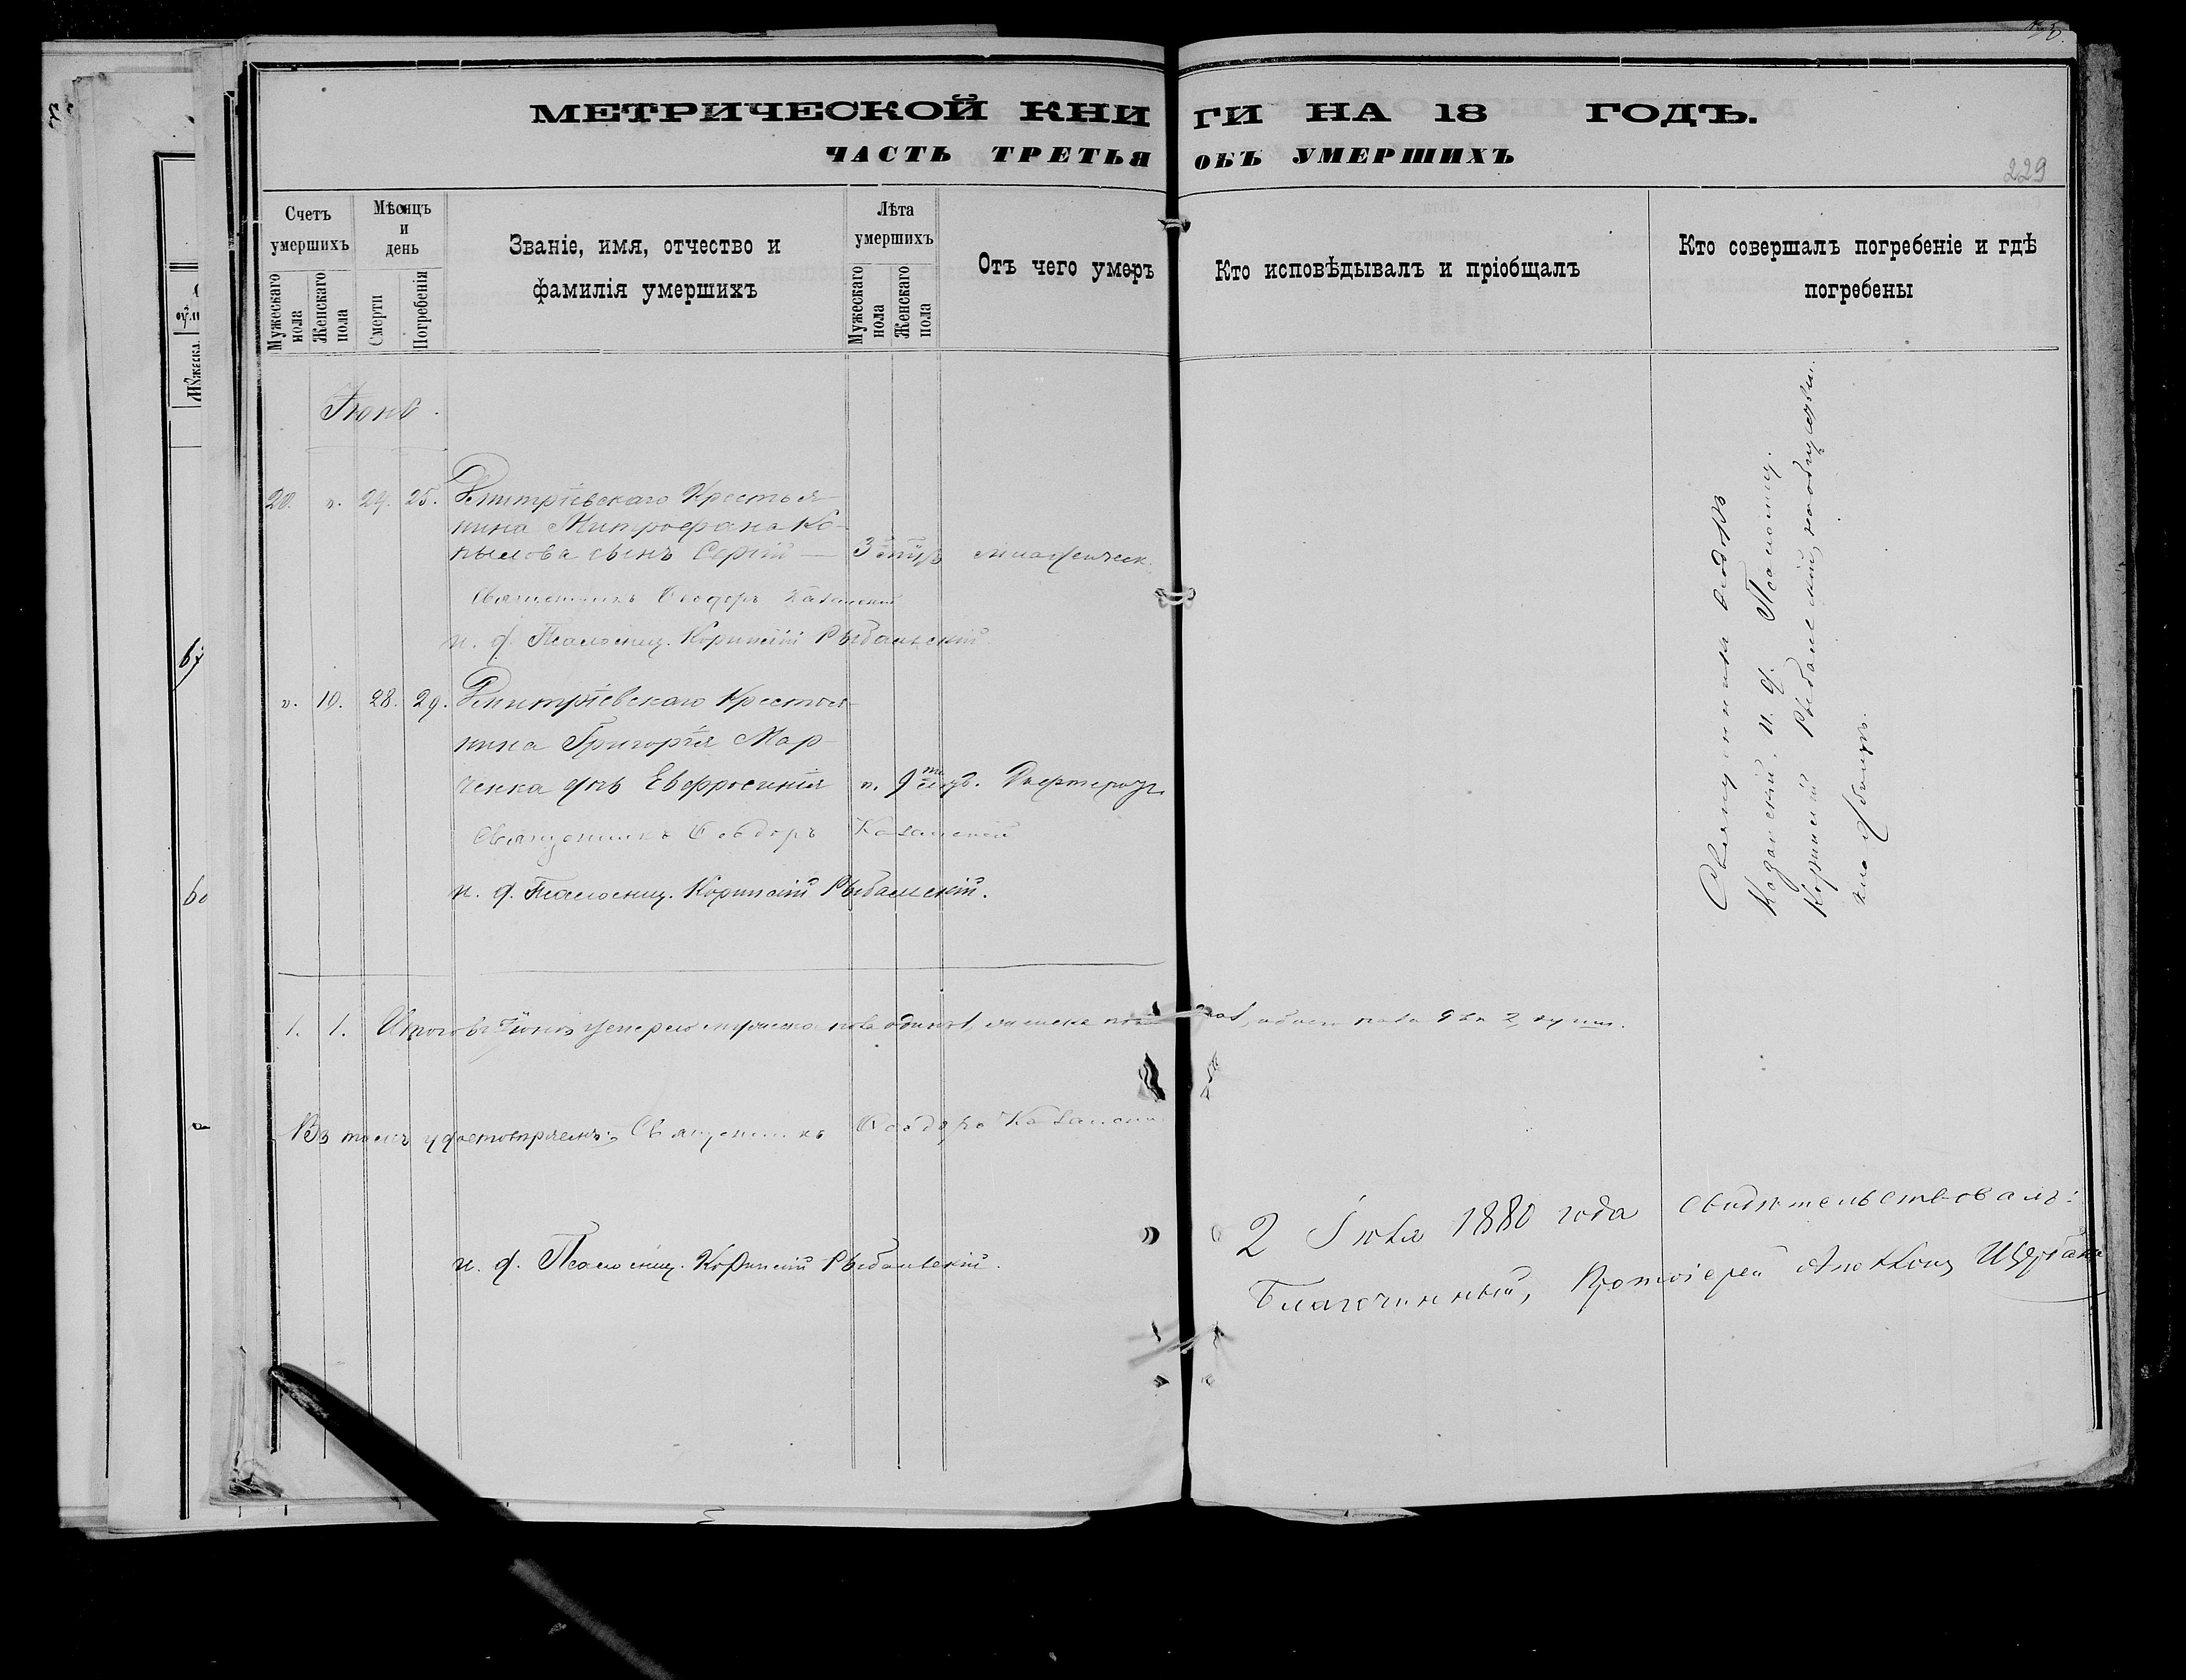 МЕТРИЧЕСКОЙ КНИГИ НА 18 ГОДЪ.
ЧАСТЬ ТРЕТЬЯ ОБЪ УМЕРШИХЪ
229
Счетъ умершихъ
Мужескаго пола
Женскаго пола
Мѣсяцъ и день
Смерти
Погребенія
Званіе, имя, отчество и фамилія умершихъ
Лѣта умершихъ
Мужескаго пола
Женскаго пола
Отъ чего умеръ
Кто исповѣдывалъ и пріобщалъ
Кто совершалъ погребеніе и гдѣ погребены
Іюнь.
20. 24. 25. Дмитріевскаго Крестья-
нина Митрофана Ко-
пылова сынъ Сергій — 3
Священникъ Ѳеодоръ Казанскій
и. д. Псаломщ. Корнилій Рыбальскій
10. 28. 29. Дмитріевскаго Крестья-
нина Григорія Мар-
ченка дчь Евфросинія 9 Дифтеритъ
Священникъ Ѳеодоръ Казанскій
и. д. Псаломщ. Корнилій Рыбальскій.
Священникъ Ѳеодоръ
Казанскій, и. д. Псаломщ.
Корнилій Рыбальскій, на общемъ
кладбищѣ.
1. 1. Итого въ Іюнѣ умерло мужеска пола одинъ 1, женска пола 1, обоего пола два 2, души.
Въ томъ удостовѣряемъ: Священникъ Ѳеодоръ Казанскій
и. д. Псаломщ. Корнилій Рыбальскій.
2 Іюля 1880 года свидѣтельствовалъ:
Благочинный, Протоіерей